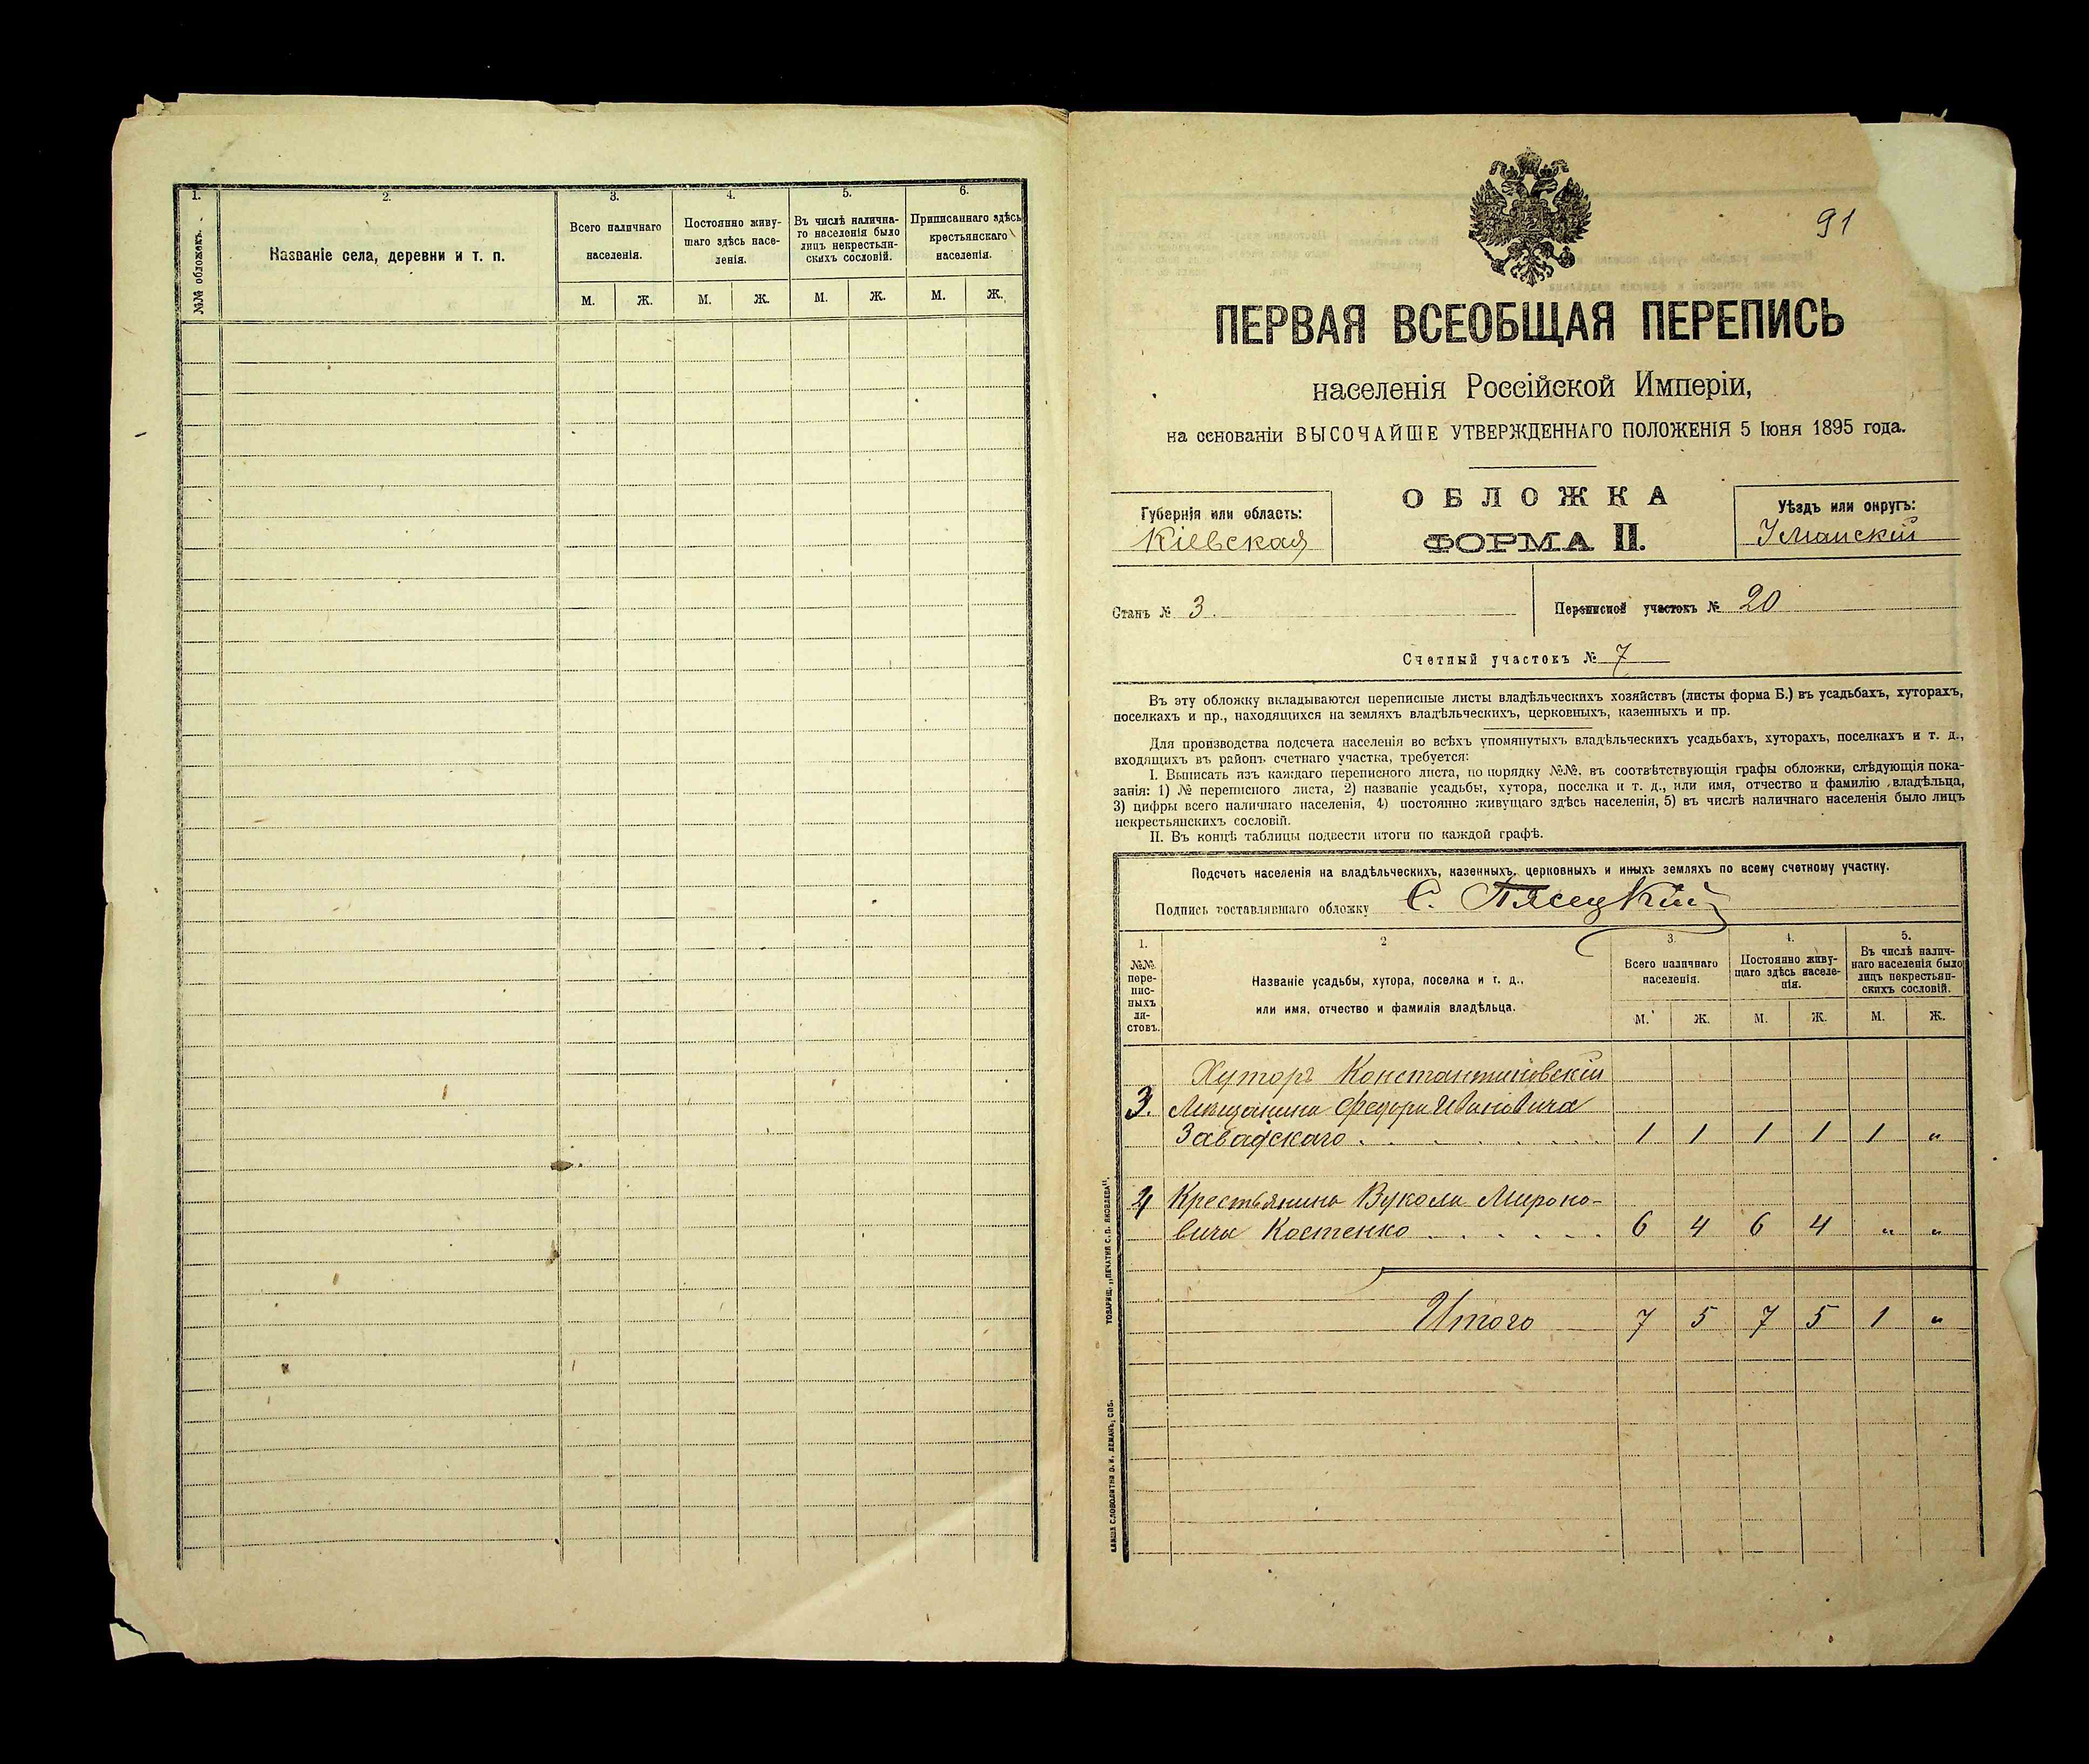 1.
2.
3.
4.
5.
6.
№№ обложекъ.
Названіе села, деревни и т. п.
Всего наличнаго
населенія.
Постоянно живу-
щаго здѣсь насе-
ленія.
Въ числѣ налична-
го населенія было
лицъ некрестьян-
скихъ сословій.
Приписаннаго здѣсь
крестьянскаго
населенія.
М. Ж. М. Ж. М. Ж. М. Ж.
91
ПЕРВАЯ ВСЕОБЩАЯ ПЕРЕПИСЬ
населенія Россійской Имперіи,
на основаніи ВЫСОЧАЙШЕ УТВЕРЖДЕННАГО ПОЛОЖЕНІЯ 5 Іюня 1895 года.
Губернія или область:
Кіевская
ОБЛОЖКА
ФОРМА II.
Уѣздъ или округъ:
Уманскій
Станъ № 3.
Переписной участокъ № 20
Счетный участокъ № 7
Въ эту обложку вкладываются переписные листы владѣльческихъ хозяйствъ (листы форма Б.) въ усадьбахъ, хуторахъ,
поселкахъ и пр., находящихся на земляхъ владѣльческихъ, церковныхъ, казенныхъ и пр.
Для производства подсчета населенія во всѣхъ упомянутыхъ владѣльческихъ усадьбахъ, хуторахъ, поселкахъ и т. д.,
входящихъ въ районъ счетнаго участка, требуется:
I. Выписать изъ каждаго переписного листа, по порядку №№, въ соотвѣтствующія графы обложки, слѣдующія пока-
занія: 1) № переписного листа, 2) названіе усадьбы, хутора, поселка и т. д., или имя, отчество и фамилію владѣльца,
3) цифры всего наличнаго населенія, 4) постоянно живущаго здѣсь населенія, 5) въ числѣ наличнаго населенія было лицъ
некрестьянскихъ сословій.
II. Въ концѣ таблицы подвести итоги по каждой графѣ.
Подсчетъ населенія на владѣльческихъ, казенныхъ, церковныхъ и иныхъ земляхъ по всему счетному участку.
Подпись составлявшаго обложку С. Пясецкій
1.
2
3.
4.
5.
№№
пере-
пис-
ныхъ
ли-
стовъ.
Названіе усадьбы, хутора, поселка и т. д.,
или имя, отчество и фамилія владѣльца.
Всего наличнаго
населенія.
Постоянно живу-
щаго здѣсь населе-
нія.
Въ числѣ налич-
наго населенія было
лицъ некрестьян-
скихъ сословій.
М. Ж. М. Ж. М. Ж.
Хуторъ Константиновскій
3. Мѣщанина Федора Ивановича
Завадскаго . . . . . . . 1 1 1 1 1 „
4 Крестьянина Вукола Мироно-
вича Костенко . . . . . . 6 4 6 4 „ „
Итого 7 5 7 5 1 „
ТОВАРИЩ. „ПЕЧАТНЯ С. П. ЯКОВЛЕВА“.
КЛИШЕ СЛОВОЛИТНИ О. И. ЛЕМАНЪ, СПБ.